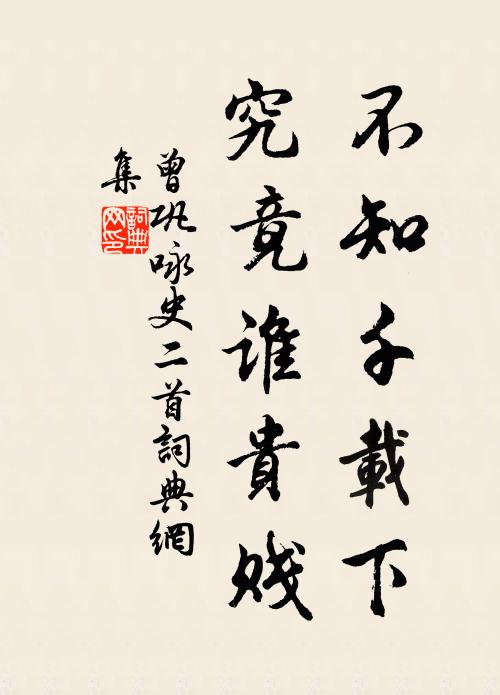 不知千載下
究竟誰貴賤
曾鞏咏史二首詞典網
集
詞典网印